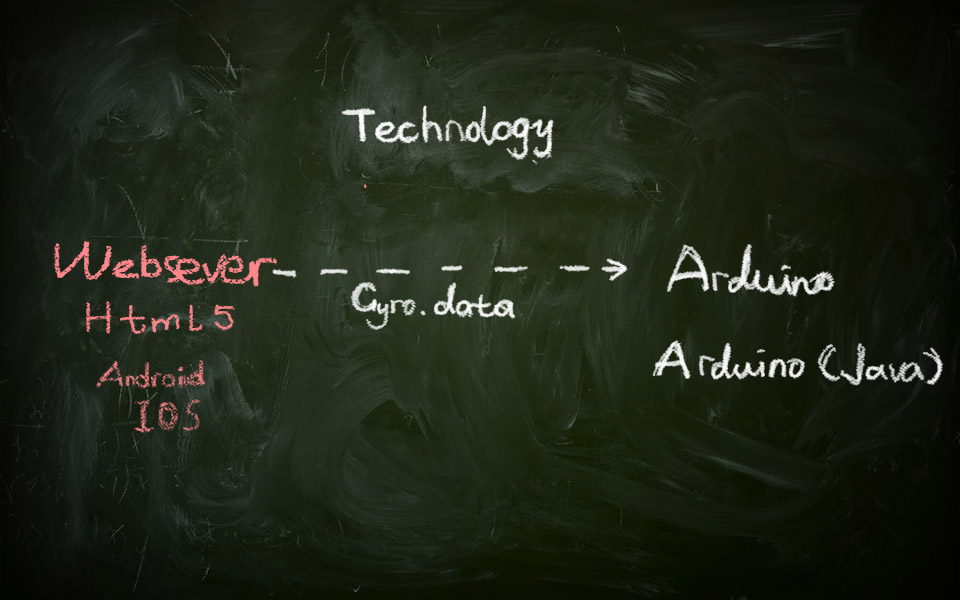 Technology
Websever
Gyro.data
Arduino
Html5
Arduino (Java)
Android
IOS